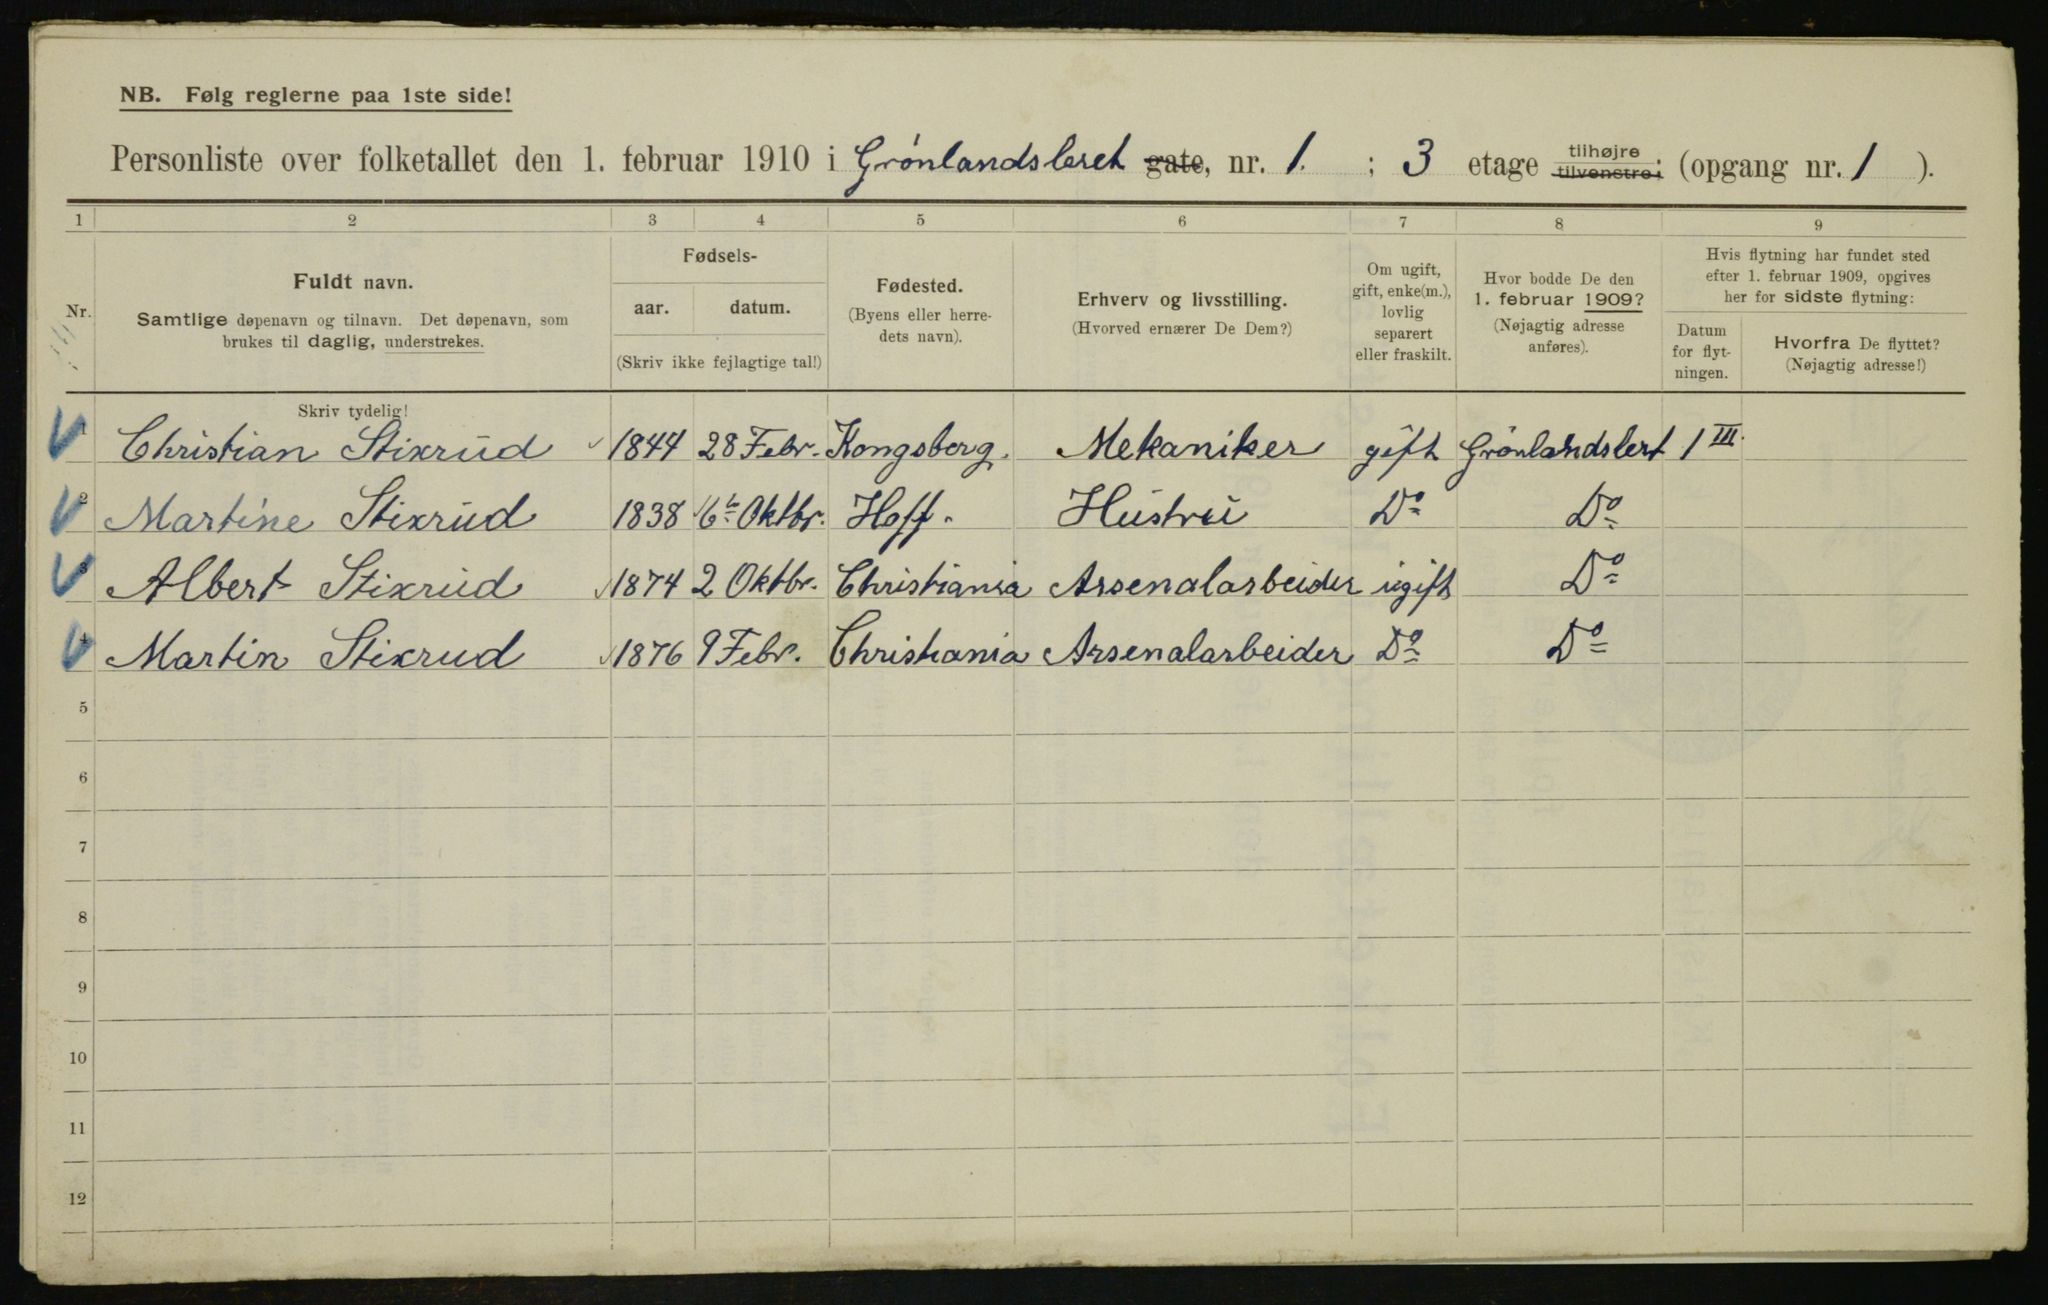 NB. Følg reglerne paa 1ste side!
Personliste over folketallet den 1. februar 1910 i Grønlandsleret gate, nr. 1. ; 3 etage tilhøjre tilvenstre; (opgang nr. 1 ).
1 2 3 4 5 6 7 8 9
Nr.
Fuldt navn.
Samtlige døpenavn og tilnavn. Det døpenavn, som
brukes til daglig, understrekes.
Fødsels-
aar. datum.
(Skriv ikke fejlagtige tal!)
Fødested.
(Byens eller herre-
dets navn).
Erhverv og livsstilling.
(Hvorved ernærer De Dem?)
Om ugift,
gift, enke(m.),
lovlig
separert
eller fraskilt.
Hvor bodde De den
1. februar 1909?
(Nøjagtig adresse
anføres).
Hvis flytning har fundet sted
efter 1. februar 1909, opgives
her for sidste flytning:
Datum
for flyt-
ningen.
Hvorfra De flyttet?
(Nøjagtig adresse!)
Skriv tydelig!
1 Christian Stixrud 1844 28 Febr. Kongsberg. Mekaniker gift Grønlandslert 1 III.
2 Martine Stixrud 1838 Oktbr. Hoff. Hustru Do Do
3 Albert Stixrud 1874 2 Oktbr. Christiania Arsenalarbeider ugift Do
4 Martin Stixrud 1876 9 Febr. Christiania Arsenalarbeider Do Do
5
6
7
8
9
10
11
12